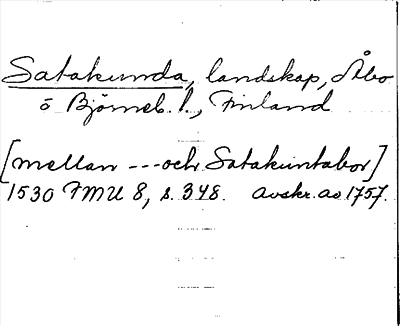 Satakunda, landskap, Åbo
o Björneb. l., Finland
[mellan --- och Satakuntabor]
1530 FMU 8, s. 348. Avskr. av 1757.